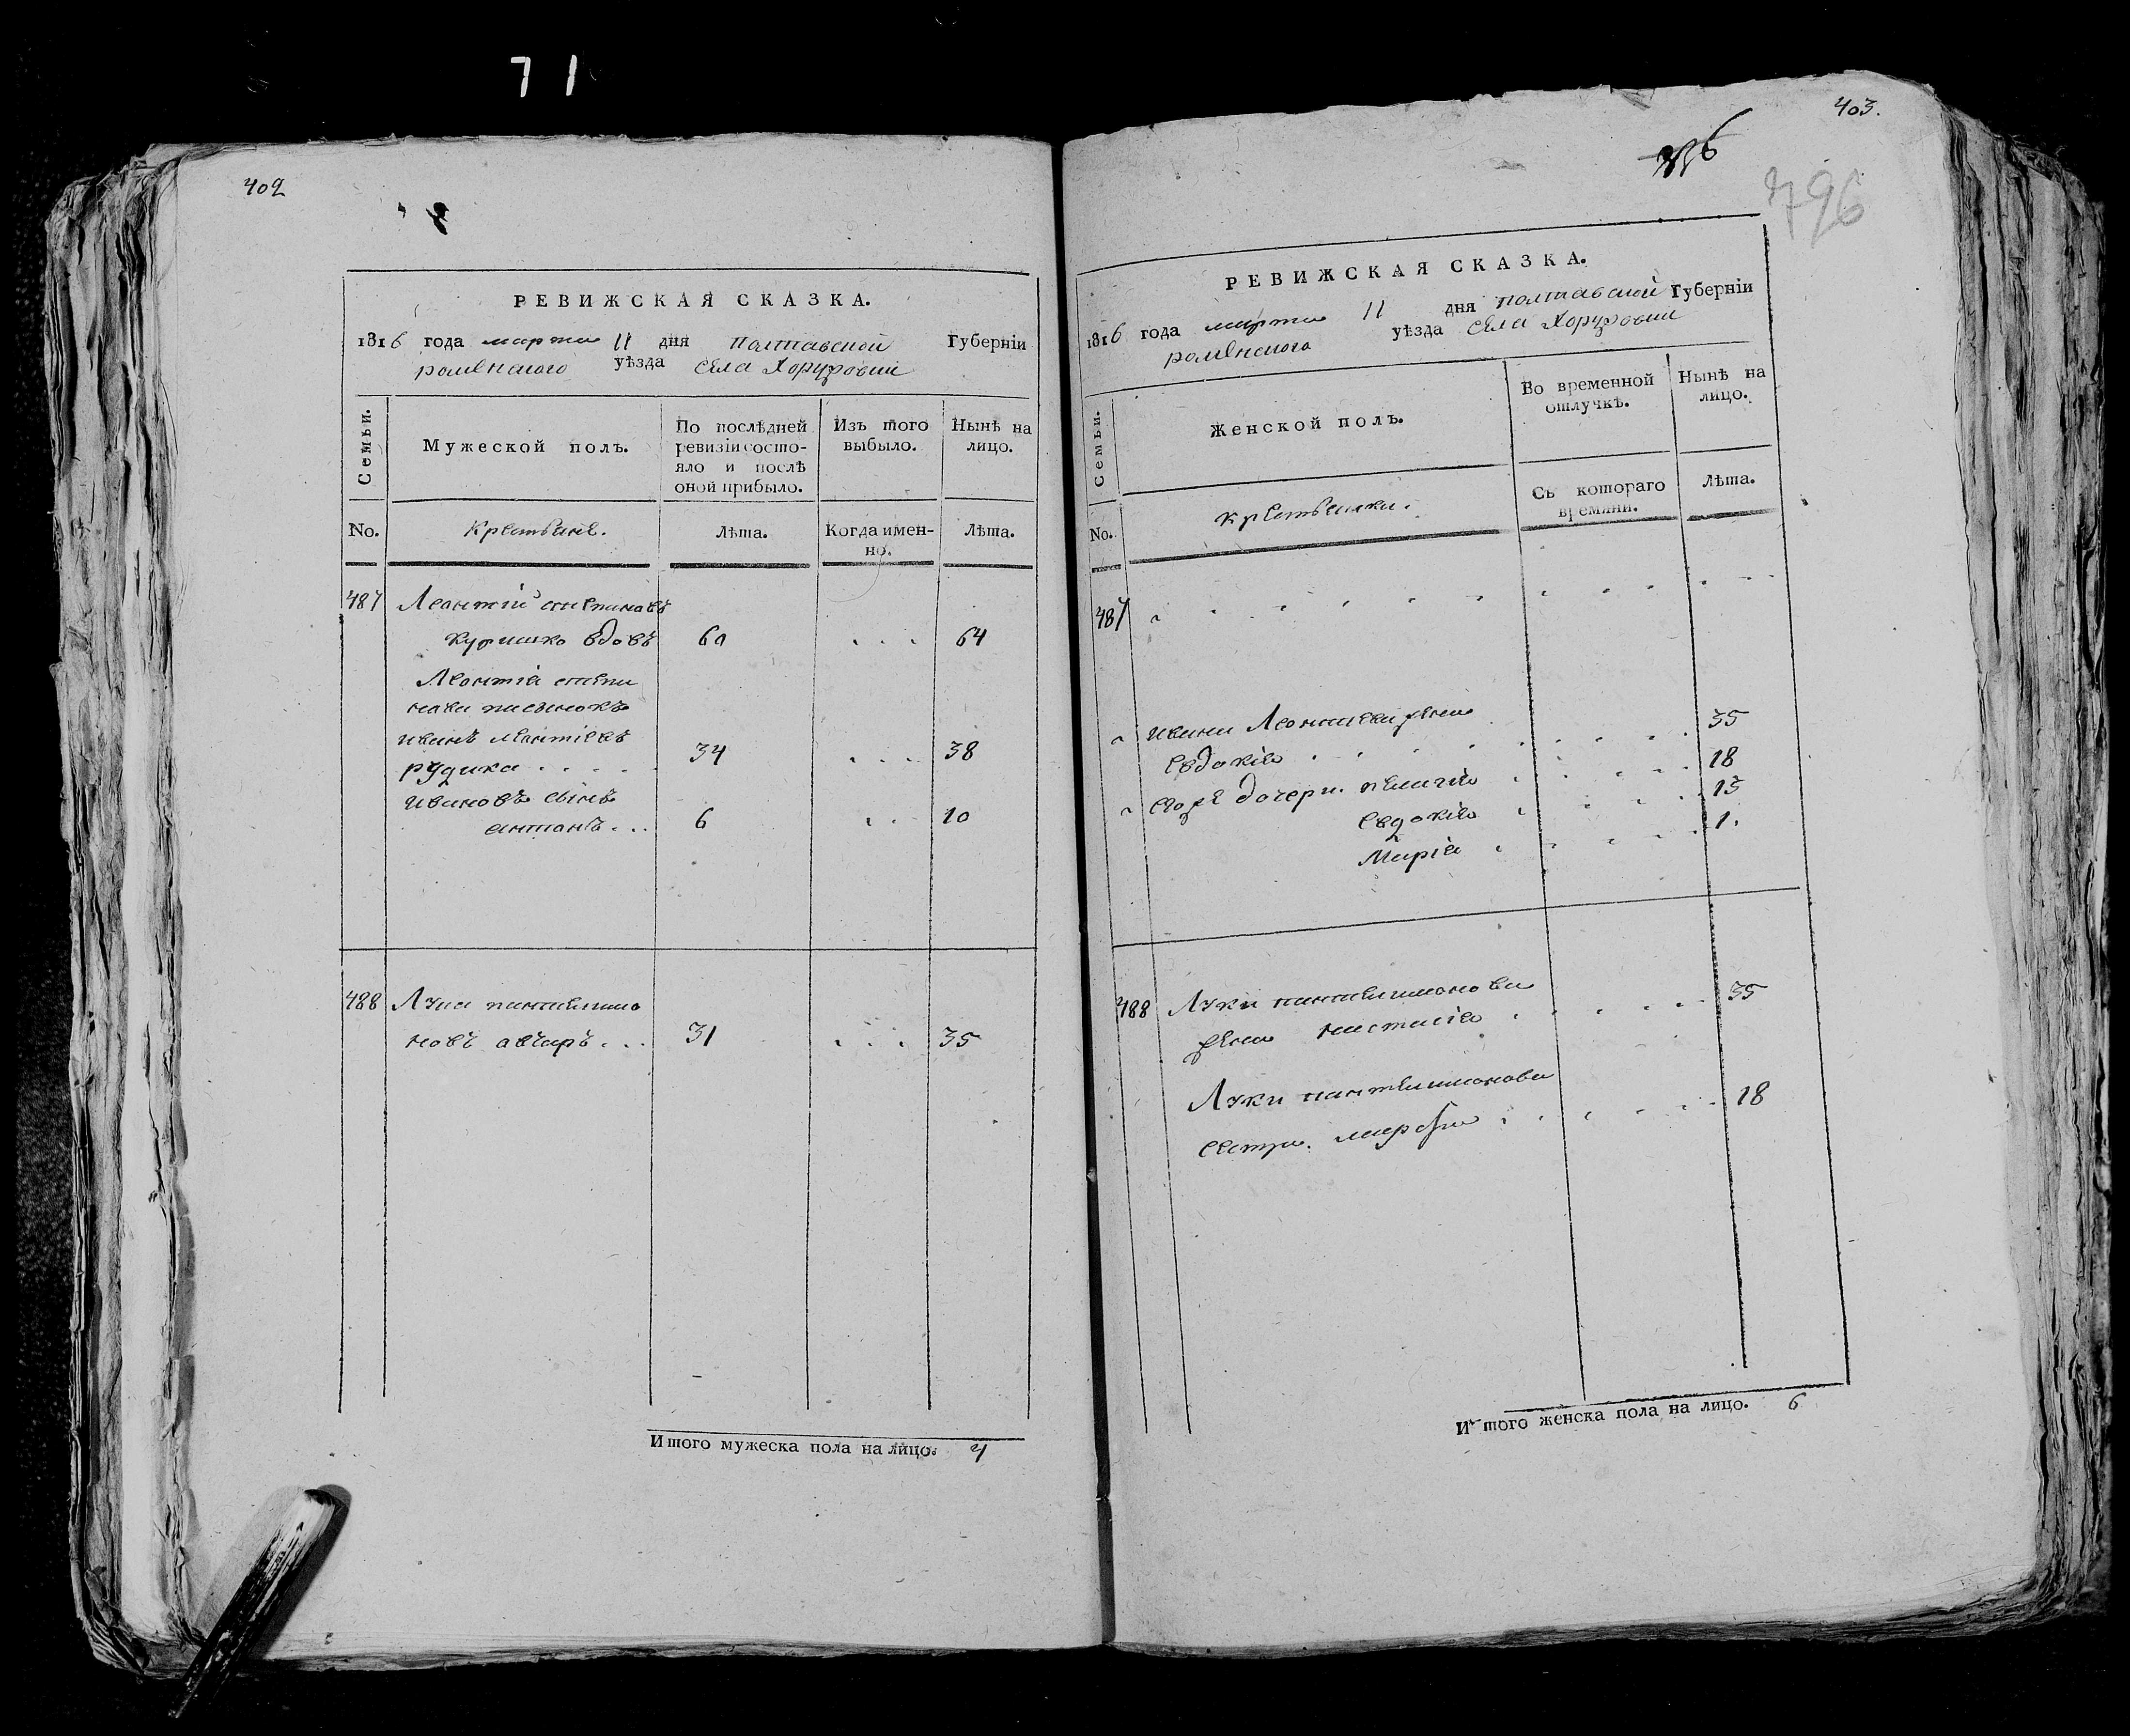 71
402
РЕВИЖСКАЯ СКАЗКА.
1816 года марта 11 дня полтавской Губерніи
роменского уѣзда села Хоружовки
Семьи.
Мужеской полъ.
По послѣдней ревизіи состо-
яло и послѣ
оной прибыло.
Изъ того
выбыло.
Нынѣ на
лицо.
No.
Крестьяне.
Лѣта.
Когда имен-
но.
Лѣта.
487 Леонтій
вдовъ 60 . . . 64
Леонтія
Иванъ леонтіевъ
рудика . . . . 34 . . . 38
Ивановъ сынъ
антонъ . . . 6 . . . 10
488 Лука пантилимо
новъ авчаръ . . . 31 . . . 35
Итого мужеска пола на лицо. 4
403.
796
РЕВИЖСКАЯ СКАЗКА.
1816 года марта 11 дня полтавской Губерніи
роменского уѣзда села Хоружовки
Семьи.
Женской полъ.
Во временной
отлучкѣ.
Нынѣ на
лицо.
No.
Крестьянки.
Съ котораго
времяни.
Лѣта.
487
Ивана Леонтіева жена
Евдокія 35
его же дочери пелагія 18
Евдокія 13
Марія 1.
488 Луки пантилимонова
жена настасія 35
Луки пантилимонова
сестра марфа 18
Итого женска пола на лицо. 6